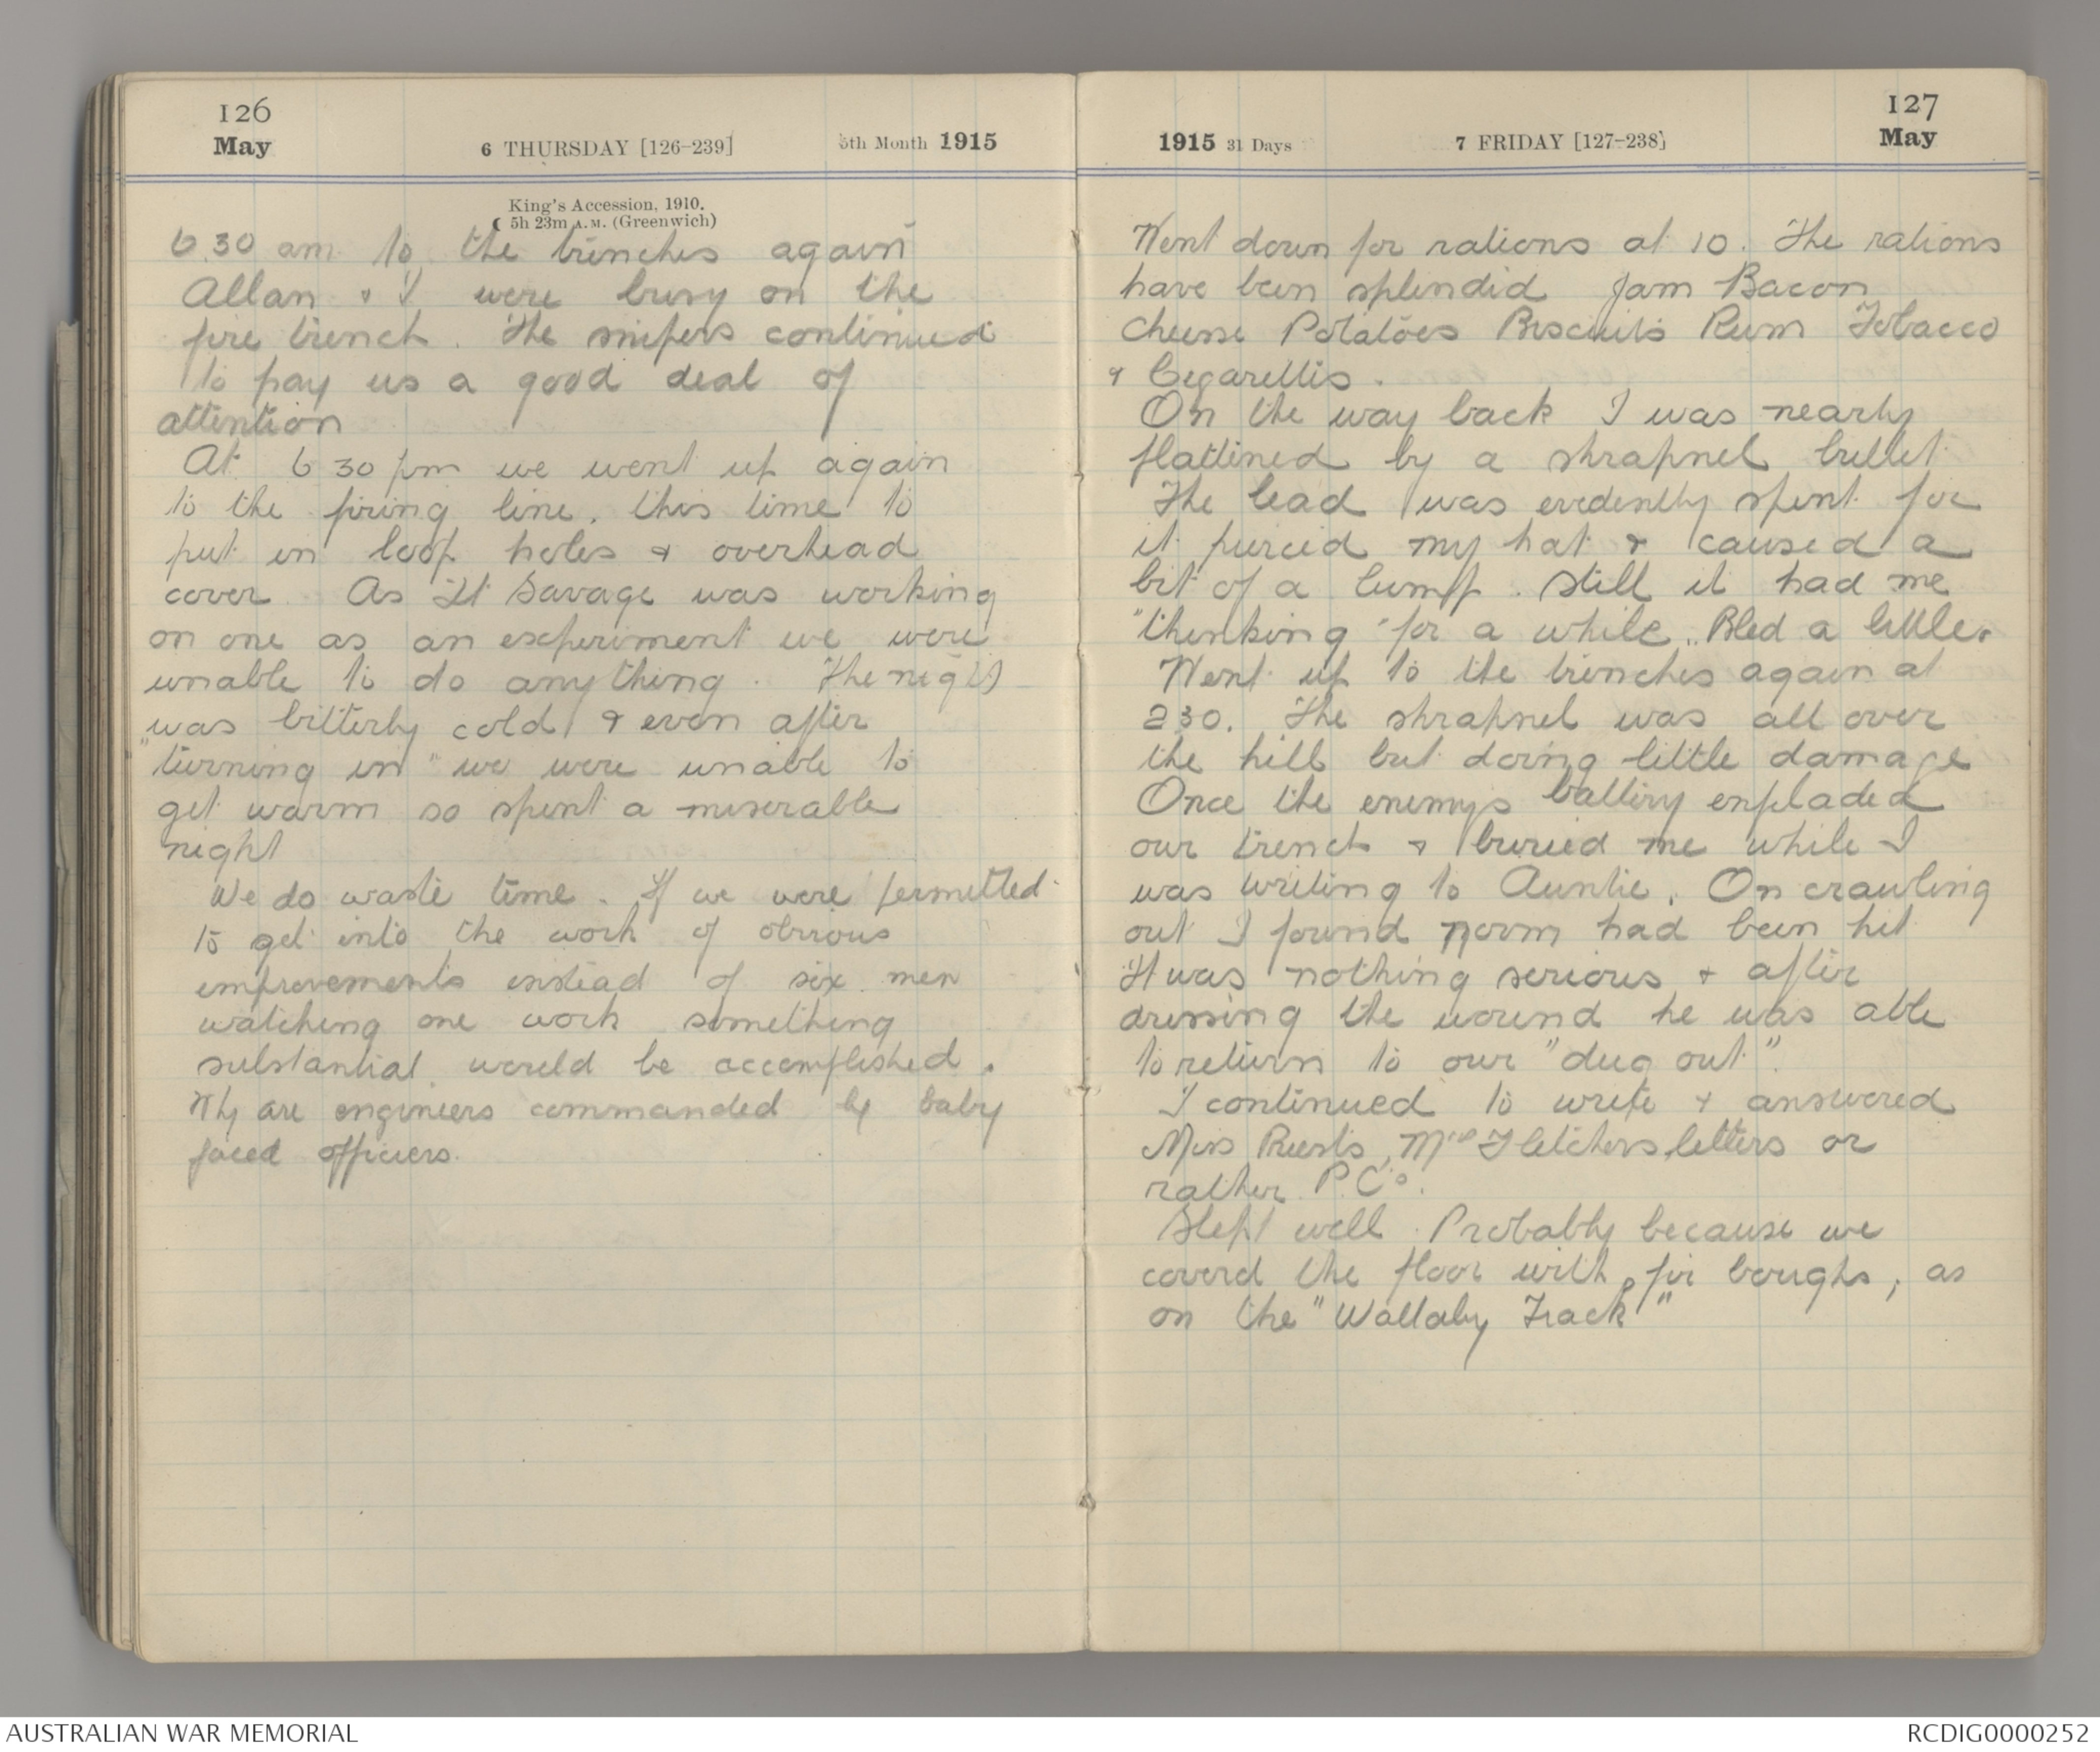 126
May
6 THURSDAY [126-239]
5th Month 1915
King's Accession, 1910.
☾ 5h 23m A.M. (Greenwich)
6.30 am to the trenches again
Allan & I were busy on the
fire trench. The snipers continued
to pay us a good deal of
attention
At 6 30 pm we went up again
to the firing line, this time to
put in loop holes & overhead
cover. As Lt Savage was working
on one as an experiment we were
unable to do anything. The night
was bitterly cold & even after
"turning in" we were unable to
get warm so spent a miserable
night
We do waste time. If we were permitted
to get into the work of obvious
improvements instead of six men
watching one work something
substantial would be accomplished.
Why are engineers commanded by baby
faced officers.
1915 31 Days
7 FRIDAY [127-238]
127
May
Went down for rations at 10. The rations
have been splendid Jam Bacon
Cheese Potatoes Biscuits Rum Tobacco
& Cigarettes.
On the way back I was nearly
flattined by a shrapnel bullet
The lead was evidently spent for
it pierced my hat & caused a
bit of a lump. Still it had me
"thinking" for a while. Bled a little.
Went up to the trenches again at
2 30. The shrapnel was all over
the hill but doing little damage
Once the enemys battery enfladed
our trench & buried me while I
was writing to Auntie. On crawling
out I found Norm had been hit
It was nothing serious & after
dressing the wound he was able
to return to our "dug out".
I continued to write & answered
Miss Priests, Mrs Fletchers, letters or
rather P.Cs.
Slept well. Probably because we
coverd the floor with fir boughs, as
on the "Wallaby Track"
AUSTRALIAN WAR MEMORIAL
RCDIG0000252